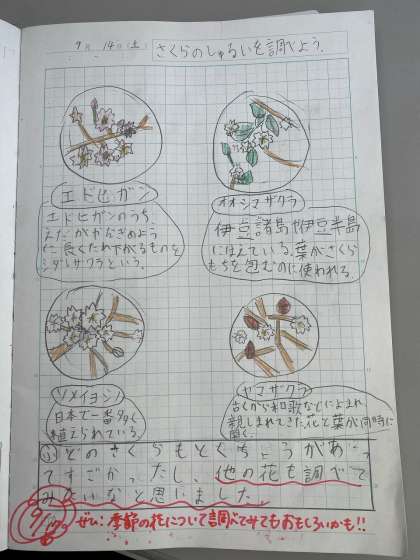 9月 14日(土) さくらのしゅるいを調べよう。
エドヒガン
エドヒガンのうち、
えだがやなぎのよう
に長くたれ下がるものを
シダレザクラという。
オオシマザクラ
伊豆諸島や伊豆半島
にはえている。葉がさくら
もちを包むのに使われる。
ソメイヨシノ
日本で一番多く
植えられている。
ヤマザクラ
古くから和歌などによまれ
親しまれてきた。花と葉が同時に
開く。
どのさくらもとくちょうがあっ
てすごかったし、他の花も調べて
みたいなと思いました。
ぜひ、季節の花について調べてみてもおもしろいかも!!